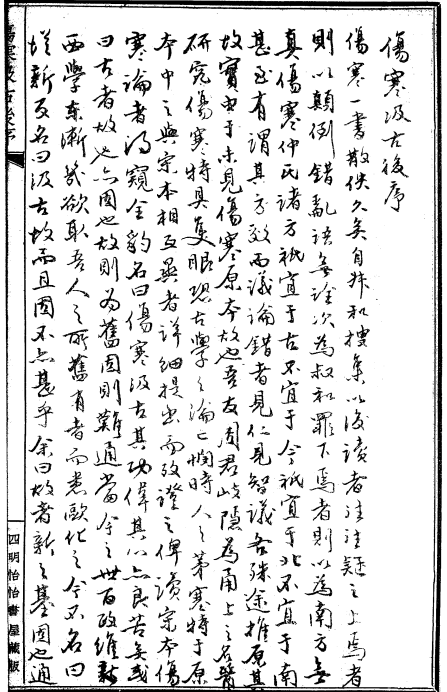 傷寒汲古後序
傷寒一書散佚久矣自叔和搜集以後讀者往往疑之上焉者
則以顛倒錯亂語無詮次為叔和罪下焉者則以為南方無
真傷寒仲氏諸方祇宜于古不宜于今祇宜于北不宜于南
甚至有謂其方效而議論錯者見仁見智議各殊途推原其
故實由于未見傷寒原本故也吾友周君岐隱為甬上之名醫
研究傷寒特具隻眼恐古學之論亡憫時人之茅塞特于原
本中之與宋本相互異者詳細提出而攷證之俾讀宋本傷
寒論者得窺全豹名曰傷寒汲古其功偉其心亦良苦矣或
曰古者故也亦固也故則為舊固則難通當今之世百政維新
西學東漸幾欲取吾人之所舊有者而悉歐化之今不名曰
增新反名曰汲古故而且固不亦甚乎余曰故者新之基固也通
傷寒汲古後序
四明怡怡書屋藏版